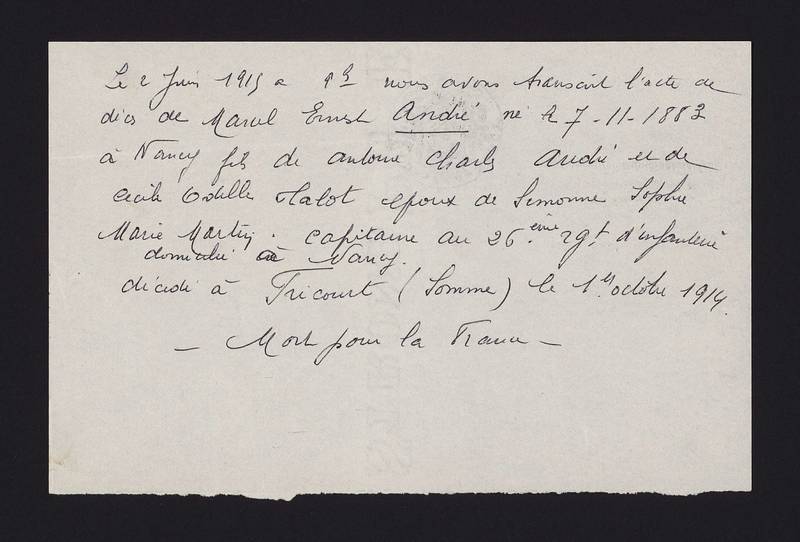 Le 2 Juin 1915 a 9h nous avons transcrit l'acte de
décès de Marcel Ernest André né le 7-11-1883
à Nancy fils de Antoine Charles André et de
Cécile Odille Halot époux de Simonne Sophie
Marie Martin. capitaine au 26.ème rgt d'infanterie
domicilié à Nancy.
décédé à Fricourt (Somme) le 1er octobre 1914.
- Mort pour la France -